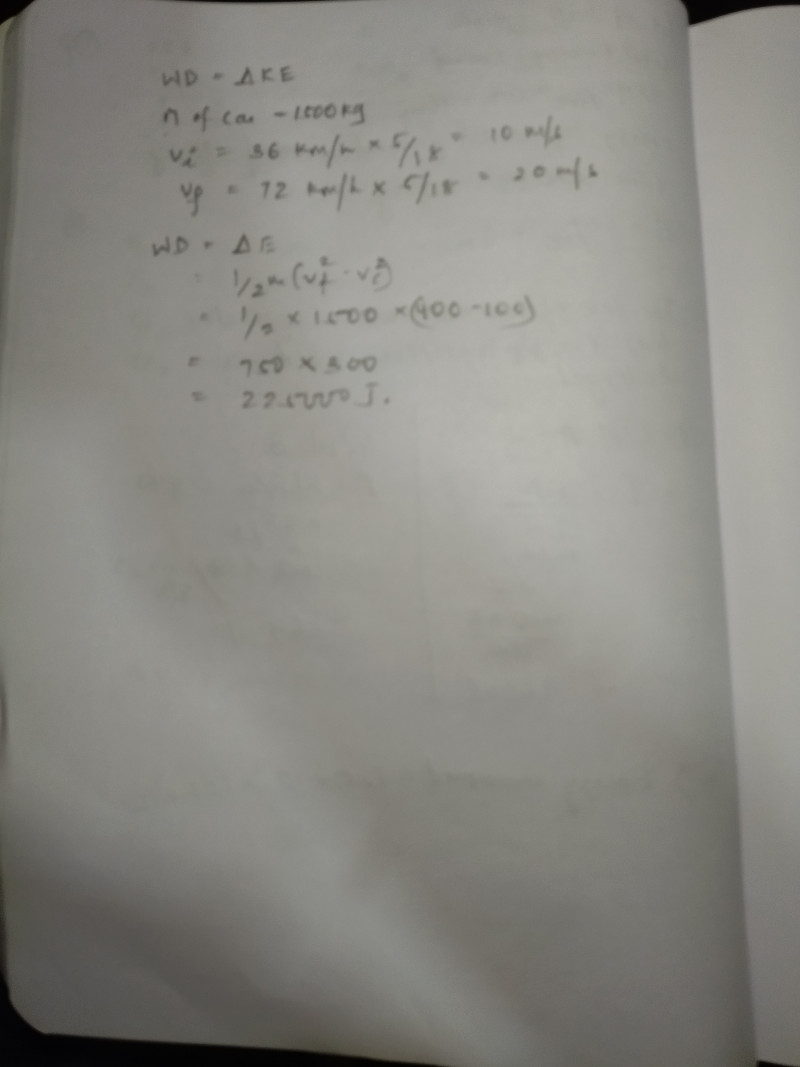 WD = ΔKE
M of car - 1500 kg
vi = 36 km/h × 5/18 = 10 m/s
vf = 72 km/h × 5/18 = 20 m/s
WD = ΔE
= 1/2 m (vf² - vi²)
= 1/2 × 1500 × (400 - 100)
= 750 × 300
= 225000 J.